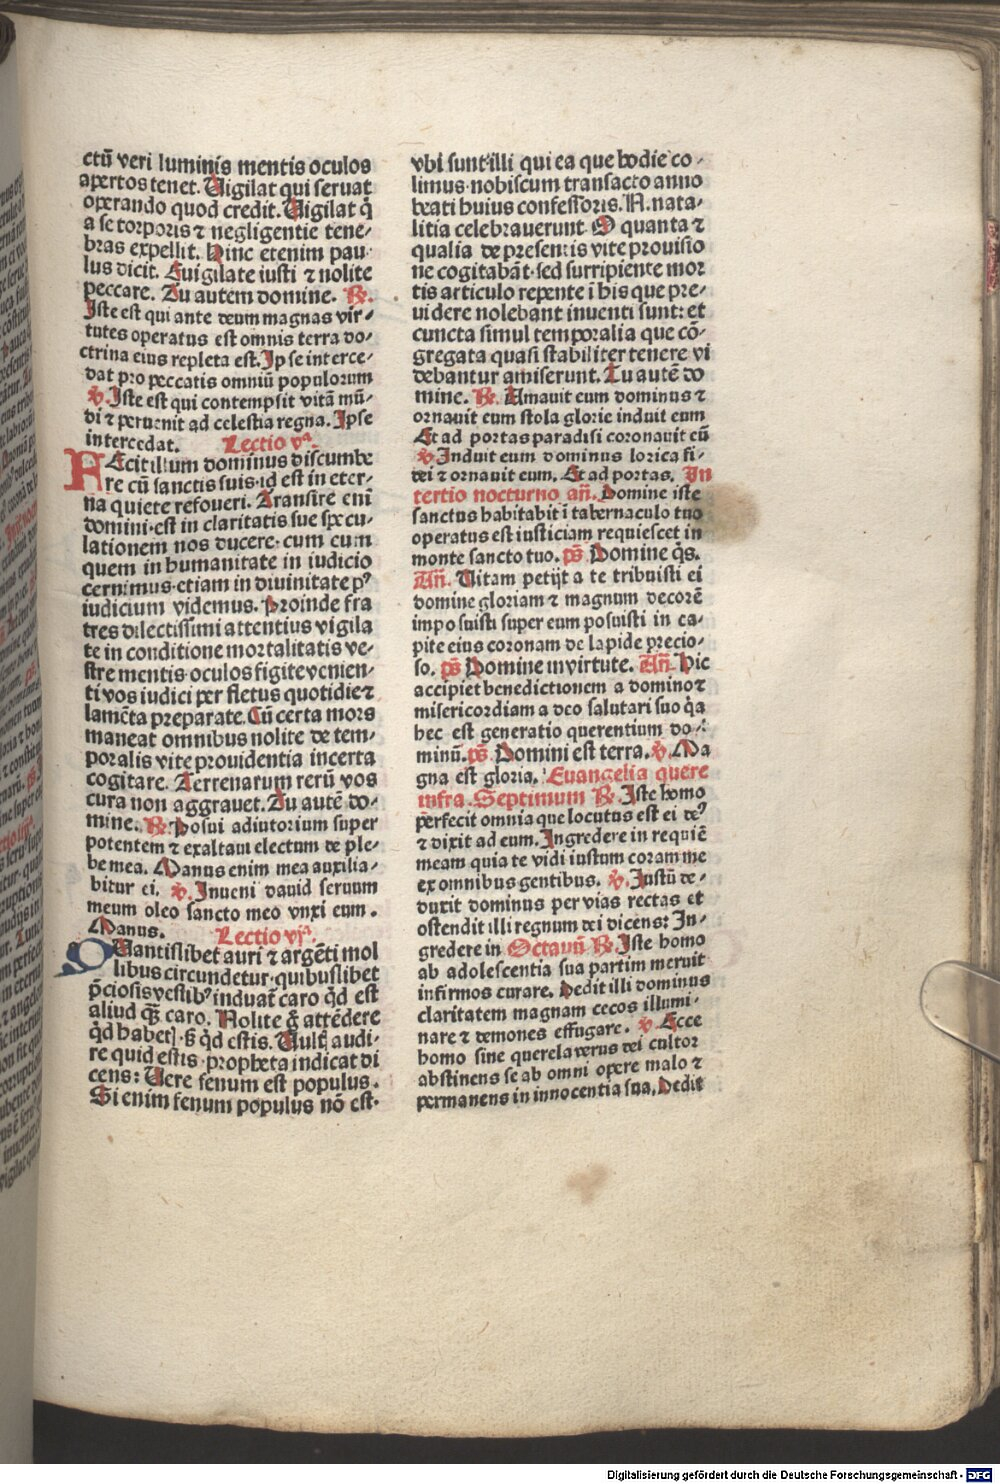 ctū veri luminis mentis oculos
apertos tenet. Uigilat qui seruat
operando quod credit. Uigilat q̄
a se torporis ⁊ negligentie tene-
bras expellit. Hinc etenim pau-
lus dicit. Euigilate iusti ⁊ nolite
peccare. Tu autem domine. R̄.
Iste est qui ante deum magnas vir-
tutes operatus est omnis terra do-
ctrina eius repleta est. Ipse interce-
dat pro peccatis omniū populorum
v̄. Iste est qui contempsit vitā mū-
di ⁊ peruenit ad celestia regna. Ipse
intercedat. Lectio vᵃ.
FEcit illum dominus discumbe
re cū sanctis suis·id est in eter-
na quiete refoueri. Transire enī
domini·est in claritatis sue specu-
lationem nos ducere·cum cum
quem in humanitate in iudicio
cernimus·etiam in diuinitate pꝰ
iudicium videmus. Proinde fra
tres dilectissimi attentius vigila
te in conditione mortalitatis ve-
stre mentis oculos figite venien-
ti vos iudici per fletus quotidie ⁊
lamēta preparate. Cū certa mors
maneat omnibus nolite de tem-
poralis vite prouidentia incerta
cogitare. Terrenarum rerū vos
cura non aggrauet. Tu autē do-
mine. R̄. Posui adiutorium super
potentem ⁊ exaltaui electum de ple-
be mea. Manus enim mea auxilia-
bitur ei. v̄. Inueni dauid seruum
meum oleo sancto meo vnxi eum.
Manus. Lectio vjᵃ.
QUantislibet auri ⁊ argēti mol
libus circundetur·quibuslibet
p̄ciosis vestibꝰ induat̄ caro q̄d est
aliud q̄ꝫ caro. Nolite g̊ attēdere
q̄d habet̄·ß q̄d estis. Uult̄ audi-
re quid estis·propheta indicat di
cens: Uere fenum est populus.
Si enim fenum populus nō est·
vbi sunt illi qui ea que hodie co-
limus·nobiscum transacto anno
beati huius confessoris. N. nata-
litia celebrauerunt. O quanta ⁊
qualia de presentis vite prouisio
ne cogitabāt·sed surripiente mor
tis articulo repente ī his que pre-
uidere nolebant inuenti sunt: et
cuncta simul temporalia que cō-
gregata quasi stabiliter tenere vi
debantur amiserunt. Tu autē do
mine. R̄. Amauit eum dominus ⁊
ornauit eum stola glorie induit eum
Et ad portas paradisi coronauit eū
v̄. Induit eum dominus lorica fi-
dei ⁊ ornauit eum. Et ad portas. In
tertio nocturno an̄. Domine iste
sanctus habitabit ī tabernaculo tuo
operatus est iusticiam requiescet in
monte sancto tuo. ps̄. Domine q̄s.
An̄. Uitam petijt a te tribuisti ei
domine gloriam ⁊ magnum decorē
imposuisti super eum posuisti in ca-
pite eius coronam de lapide precio-
so. ps̄. Domine in virtute. An̄. Hic
accipiet benedictionem a domino ⁊
misericordiam a deo salutari suo q̄a
hec est generatio querentium do-
minū. ps̄. Domini est terra. v̄. Ma
gna est gloria. Euangelia quere
infra. Septimum R̄. Iste homo
perfecit omnia que locutus est ei deꝰ
⁊ dixit ad eum. Ingredere in requiē
meam quia te vidi iustum coram me
ex omnibus gentibus. v̄. Iustū de-
duxit dominus per vias rectas et
ostendit illi regnum dei dicens: In-
gredere in Octauū R̄. Iste homo
ab adolescentia sua partim meruit
infirmos curare. Dedit illi dominus
claritatem magnam cecos illumi-
nare ⁊ demones effugare. v̄. Ecce
homo sine querela verus dei cultor
abstinens se ab omni opere malo ⁊
permanens in innocentia sua. Dedit
Digitalisierung gefördert durch die Deutsche Forschungsgemeinschaft - DFG